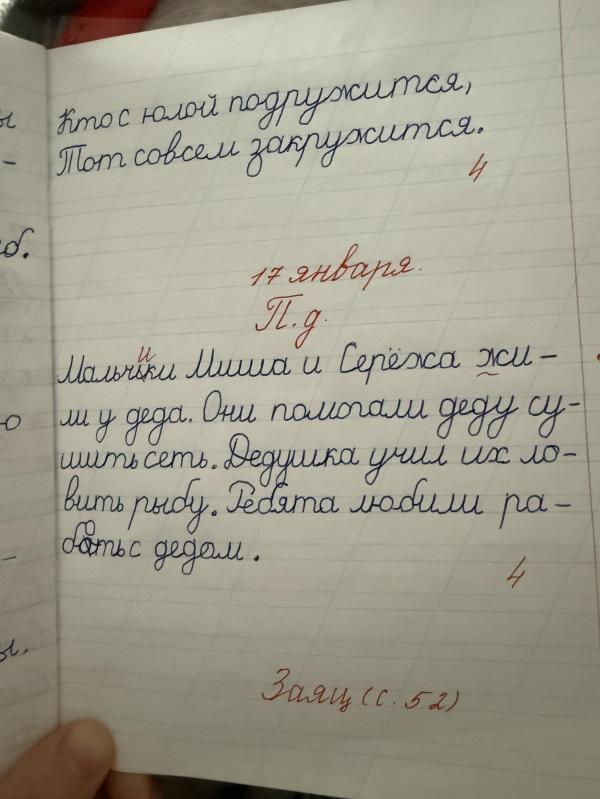 Кто с юлой подружится,
Тот совсем закружится.
4
17 января.
П. д.
Мальчики Миша и Серёжа жи-
ли у деда. Они помогали деду су-
шить сеть. Дедушка учил их ло-
вить рыбу. Ребята любили ра-
с дедом.
4
Заяц (с. 52)
ы
-
об.
ю
-
ы.